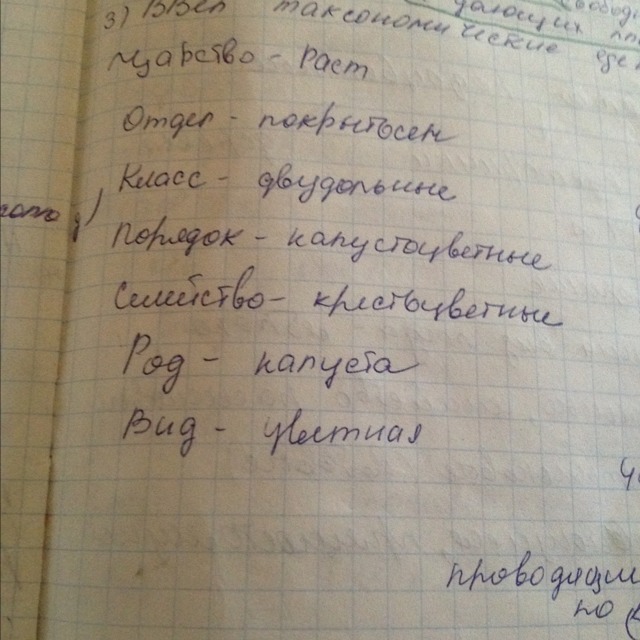 3) Ввел таксономические
дающих
Царство - Раст
Отдел - покрытосем
Класс - двудольные
Порядок - капустоцветные
Семейство - крестоцветные
Род - капуста
Вид - цветная
проводящи
по